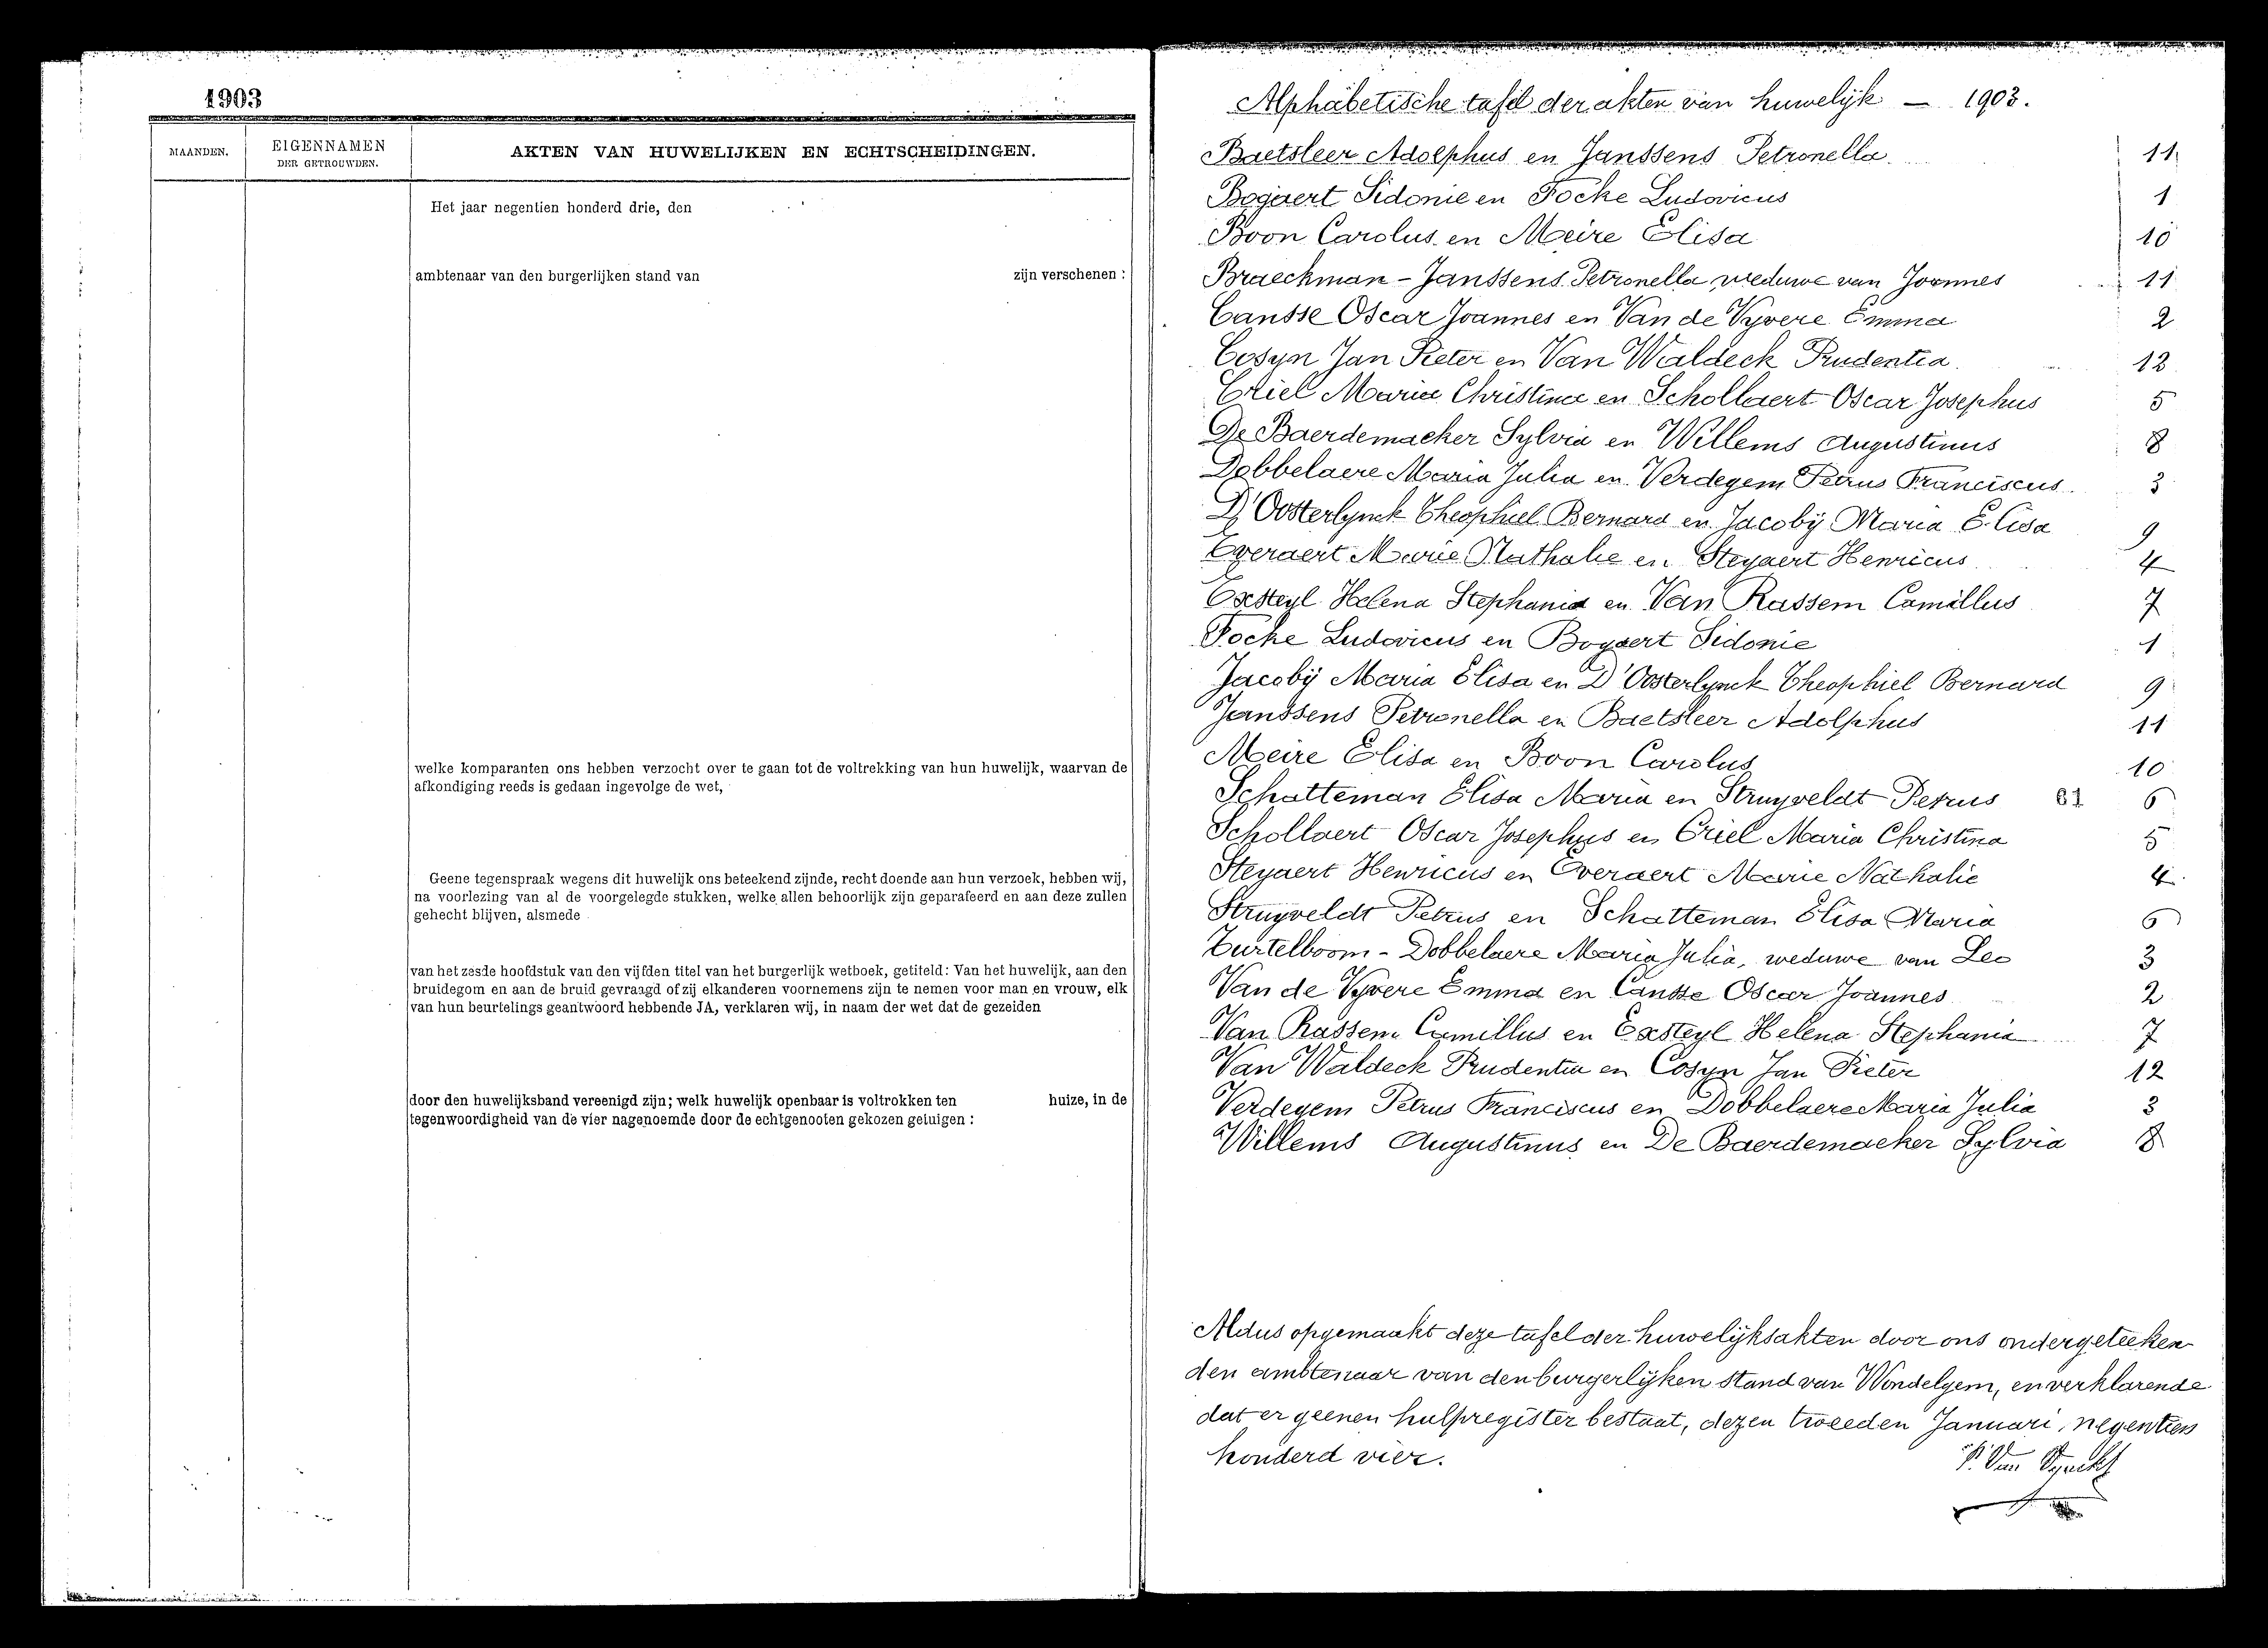 1903
MAANDEN.
EIGENNAMEN
DER GETROUWDEN.
AKTEN VAN HUWELIJKEN EN ECHTSCHEIDINGEN.
Het jaar negentien honderd drie, den
ambtenaar van den burgerlijken stand van zijn verschenen :
welke komparanten ons hebben verzocht over te gaan tot de voltrekking van hun huwelijk, waarvan de
afkondiging reeds is gedaan ingevolge de wet,
Geene tegenspraak wegens dit huwelijk ons beteekend zijnde, recht doende aan hun verzoek, hebben wij,
na voorlezing van al de voorgelegde stukken, welke allen behoorlijk zijn geparafeerd en aan deze zullen
gehecht blijven, alsmede
van het zesde hoofdstuk van den vijfden titel van het burgerlijk wetboek, getiteld: Van het huwelijk, aan den
bruidegom en aan de bruid gevraagd of zij elkanderen voornemens zijn te nemen voor man en vrouw, elk
van hun beurtelings geantwoord hebbende JA, verklaren wij, in naam der wet dat de gezeiden
door den huwelijksband vereenigd zijn; welk huwelijk openbaar is voltrokken ten huize, in de
tegenwoordigheid van de vier nagenoemde door de echtgenooten gekozen getuigen :
Alphabetische tafel der akten van huwelijk — 1903.
Baetsleer Adolphus en Janssens Petronella 11
Bogaert Sidonie en Focke Ludovicus 1
Boon Carolus en Meire Elisa 10
Braeckman - Janssens Petronella weduwe van Joannes 11
Cansse Oscar Joannes en Van de Vyvere Emma 2
Cosyn Jan Pieter en Van Waldeck Prudentia 12
Criel Maria Christina en Schollaert Oscar Josephus 5
De Baerdemacker Sylvia en Willems Augustinus 8
Dobbelaere Maria Julia en Verdegem Petrus Franciscus 3
D'Oosterlynck Theophiel Bernard en Jacobÿ Maria Elisa 9
Everaert Marie Nathalie en Steyaert Henricus 4
Exsteyl Helena Stephania en Van Rassem Camillus 7
Focke Ludovicus en Bogaert Sidonie 1
Jacobÿ Maria Elisa en D'Oosterlynck Theophiel Bernard 9
Janssens Petronella en Baetsleer Adolphus 11
Meire Elisa en Boon Carolus 10
Schatteman Elisa Maria en Struyveldt Petrus 61 6
Schollaert Oscar Josephus en Criel Maria Christina 5
Steyaert Henricus en Everaert Marie Nathalie 4
Struyveldt Petrus en Schatteman Elisa Maria 6
Turtelboom - Dobbelaere Maria Julia, weduwe van Leo 3
Van de Vyvere Emma en Cansse Oscar Joannes 2
Van Rassem Camillus en Exsteyl Helena Stephania 7
Van Waldeck Prudentia en Cosyn Jan Pieter 12
Verdegem Petrus Franciscus en Dobbelaere Maria Julia 3
Willems Augustinus en De Baerdemaeker Sylvia 8
Aldus opgemaakt deze tafel der huwelijksakten door ons ondergeteeken-
den ambtenaar van den burgerlijken stand van Wondelgem, en verklarende
dat er geenen hulpregister bestaat, dezen tweeden Januari, negentien
honderd vier.